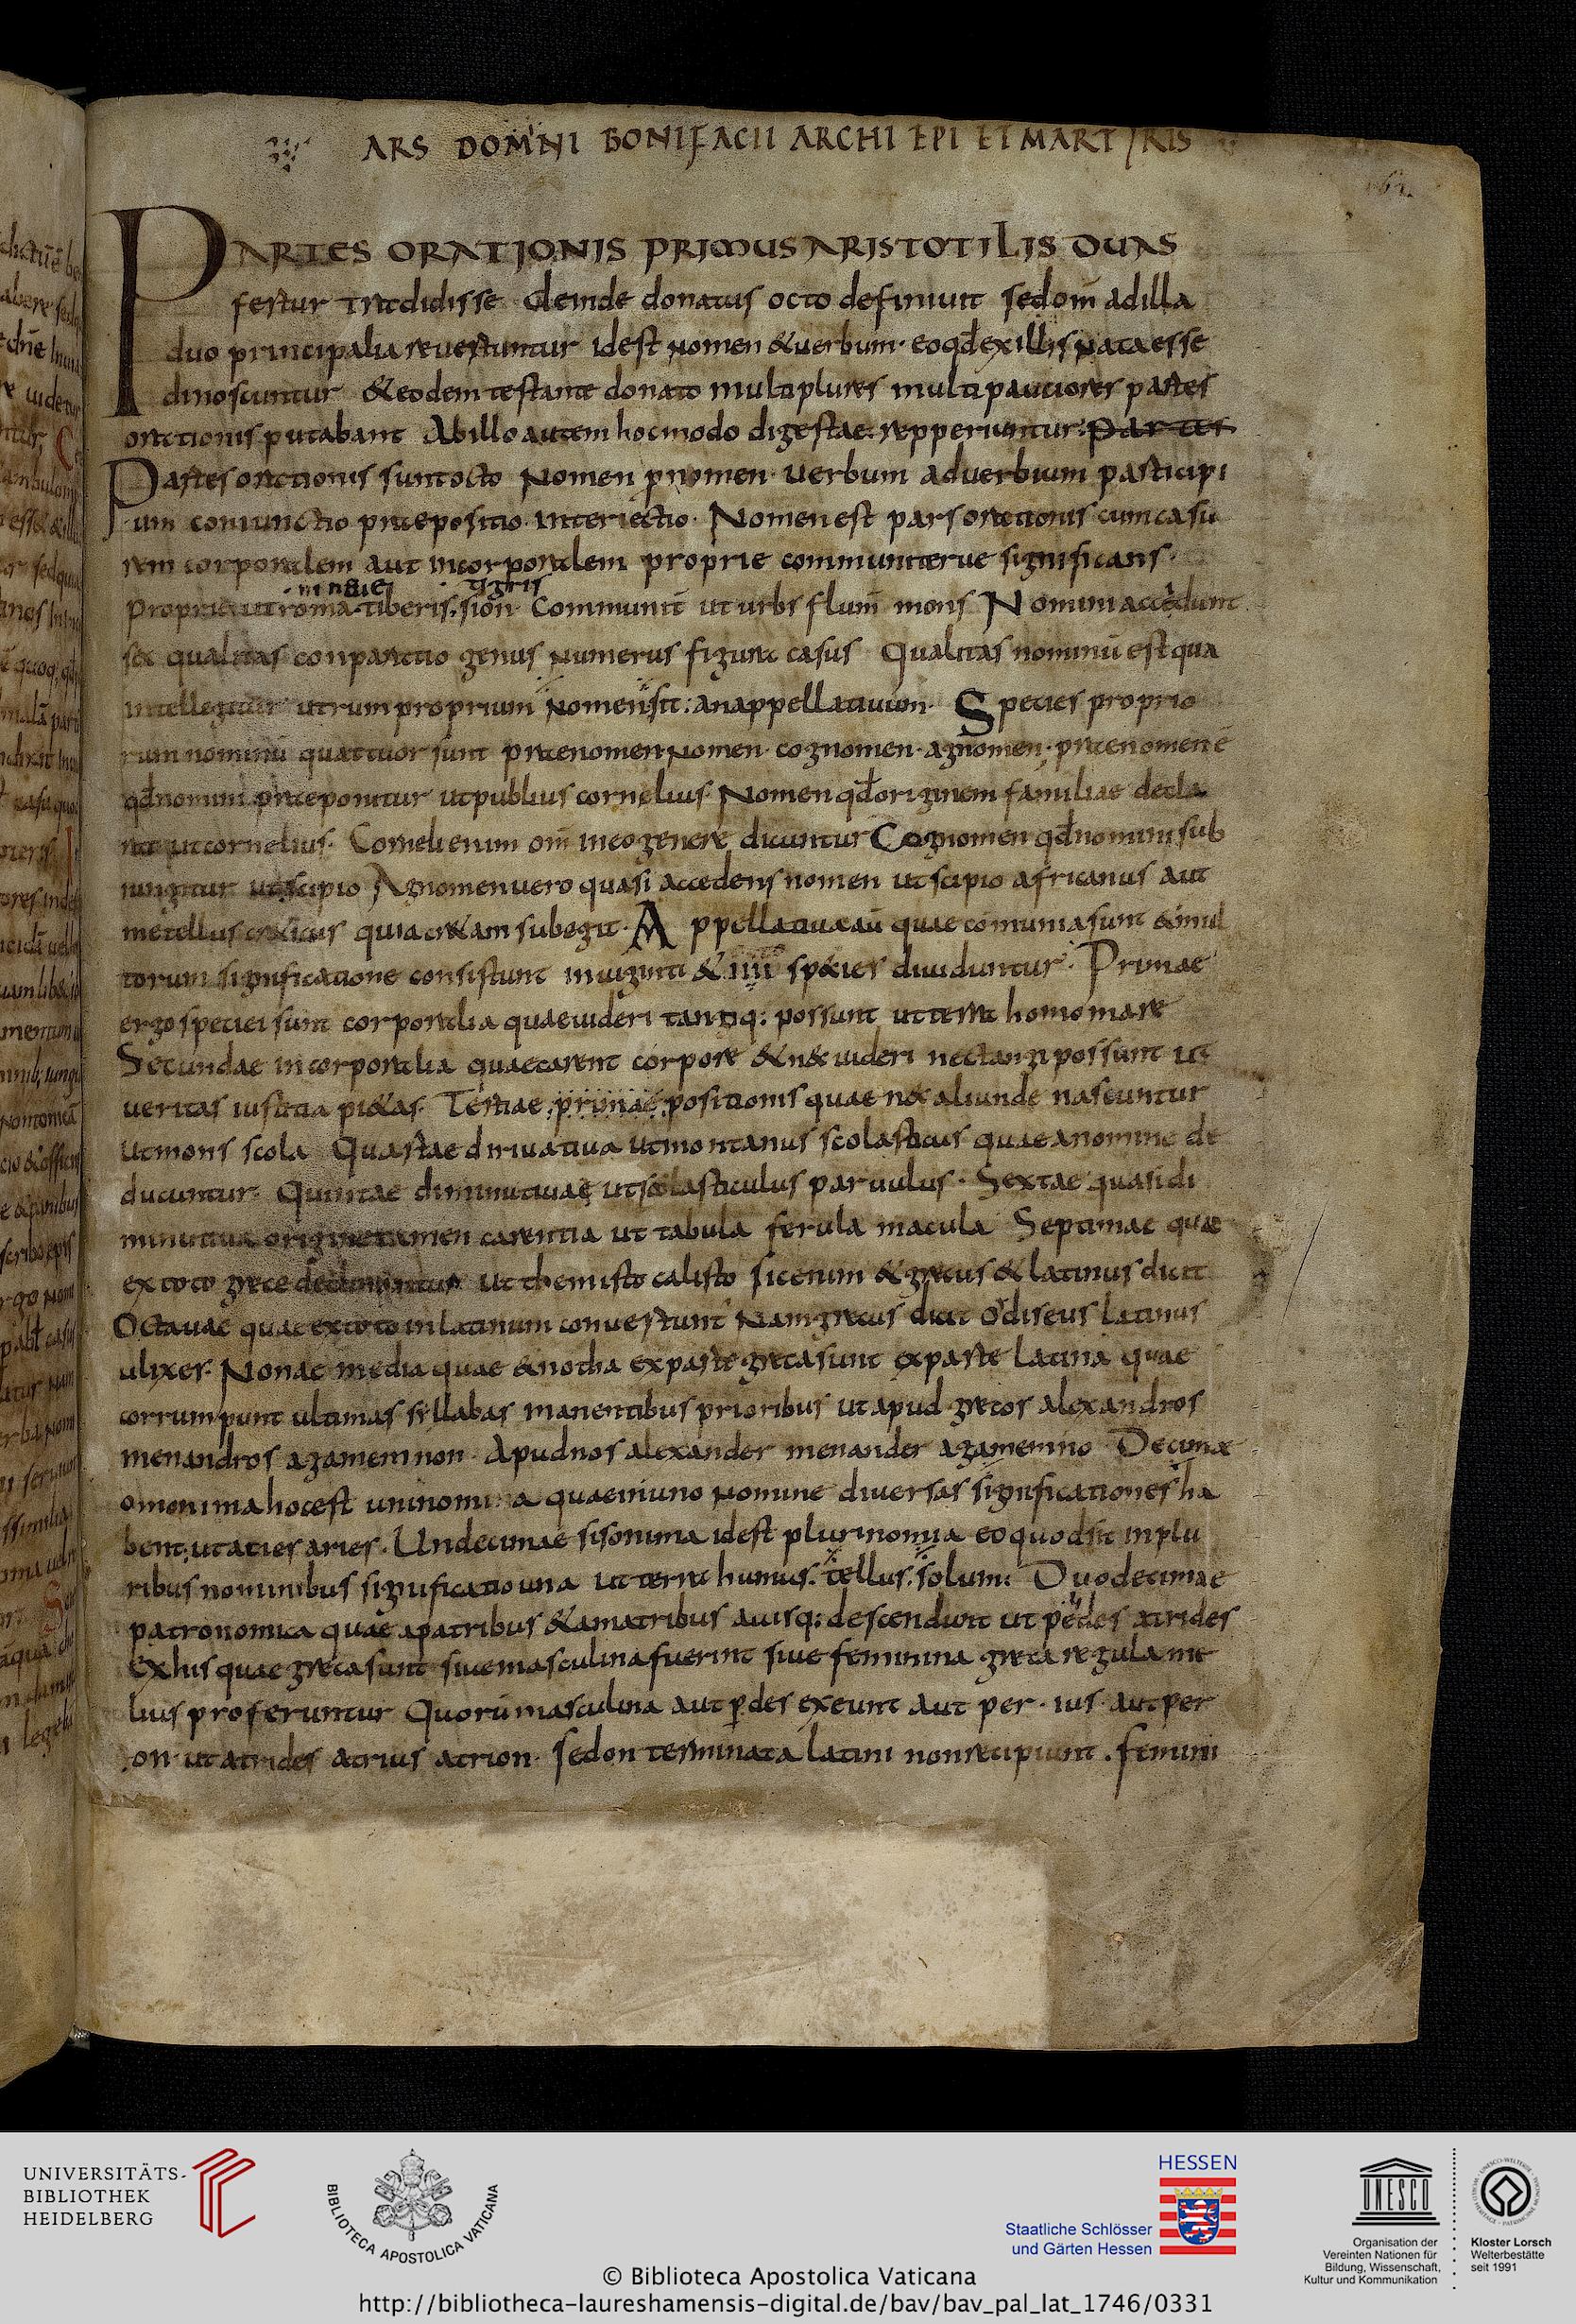 ARS DOMNI BONIFACII ARCHI EPI ET MARTYRIS
PARTES ORATIONIS PRIMUS ARISTOTILIS DUAS
fertur tradidisse deinde donatus octo definiuit sed om̄ adilla
duo principalia revertuntur idest nomen & verbum · eo qd̄ exillis nata esse
dinoscuntur & eodem testante donato multi plures multi pauciores partes
orationis putabant Ab illo autem hoc modo digestae repperiuntur: partes
Partes orationis sunt octo Nomen pronomen verbum adverbium participi
um coniunctio praepositio interiectio · Nomen est pars orationis cum casu
rem corporalem aut incorporalem proprie communiterue significans ·
nineue tigris
Proprie ut roma · tiberis · sion Communit̄ ut urbs flum̄ mons Nomini accedunt
sex qualitas conparatio genus numerus figura casus Qualitas nominū est qua
intellegitur utrum proprium nomen sit: an appellativum · Species proprio
rum nominū quattuor sunt praenomen nomen · cognomen · agnomen · praenomen ē
qd̄ nomini praeponitur ut publius cornelius Nomen qd̄ originem familiae decla
rat ut cornelius · Corneli enim om̄ in eo genere dicuntur Cognomen qd̄ nomini sub
iungitur ut scipio Agnomen vero quasi accedens nomen ut scipio africanus aut
metellus creticus quia cretam subegit · Appellativa aū quae cōmunia sunt & in mul
torum significatione consistunt in uiginti & iiii species diuiduntur · Primae
ergo speciei sunt corporalia quae uideri tangiq: possunt ut terra homo mare
Secundae incorporalia quae carent corpore & nec uideri nec tangi possunt ut
ueritas iustitia pietas · Tertiae primae positionis quae nec aliunde nascuntur
ut mons scola Quartae dirivativa ut montanus scolasticus quae a nomine de
ducuntur · Quintae diminutivae ut scolasticulus parvulus · Sextae quasi di
minutiua origine tamen carentia ut tabula ferula macula Septimae quae
ex toto grece declinantur ut themisto calisto sic enim & grecus & latinus dicit
Octavae quae ex toto in latinum convertunt Nam grecus dicit odiseus latinus
ulixes · Nonae media quae & notha ex parte greca sunt ex parte latina quae
corrumpunt ultimas syllabas manentibus prioribus ut apud grecos alexandros
menandros agamemnon · Apud nos alexander menander agamemno Decimae
omonima hoc est uninomina quae in uno nomine diversas significationes ha
bent ut acies aries · Undecimae sinonima idest plurinomia eo quod sit in plu
ribus nominibus significatio una ut terra humus · tellus · solum: Duodecimae
patronomica quae a patribus & a matribus auisq: descendunt ut pelides atrides
Ex his quae greca sunt siue masculina fuerint siue feminina · greca regula me
lius proferuntur Quorū masculina aut p̱ des exeunt aut per · ius · aut per
on · ut atrides atrius atrion · sed on terminata latini non recipiunt · femini
UNIVERSITÄTS-
BIBLIOTHEK
HEIDELBERG
BIBLIOTECA APOSTOLICA VATICANA
HESSEN
Staatliche Schlösser
und Gärten Hessen
UNESCO
Organisation der
Vereinten Nationen für
Bildung, Wissenschaft,
Kultur und Kommunikation
Kloster Lorsch
Welterbestätte
seit 1991
© Biblioteca Apostolica Vaticana
http://bibliotheca-laureshamensis-digital.de/bav/bav_pal_lat_1746/0331